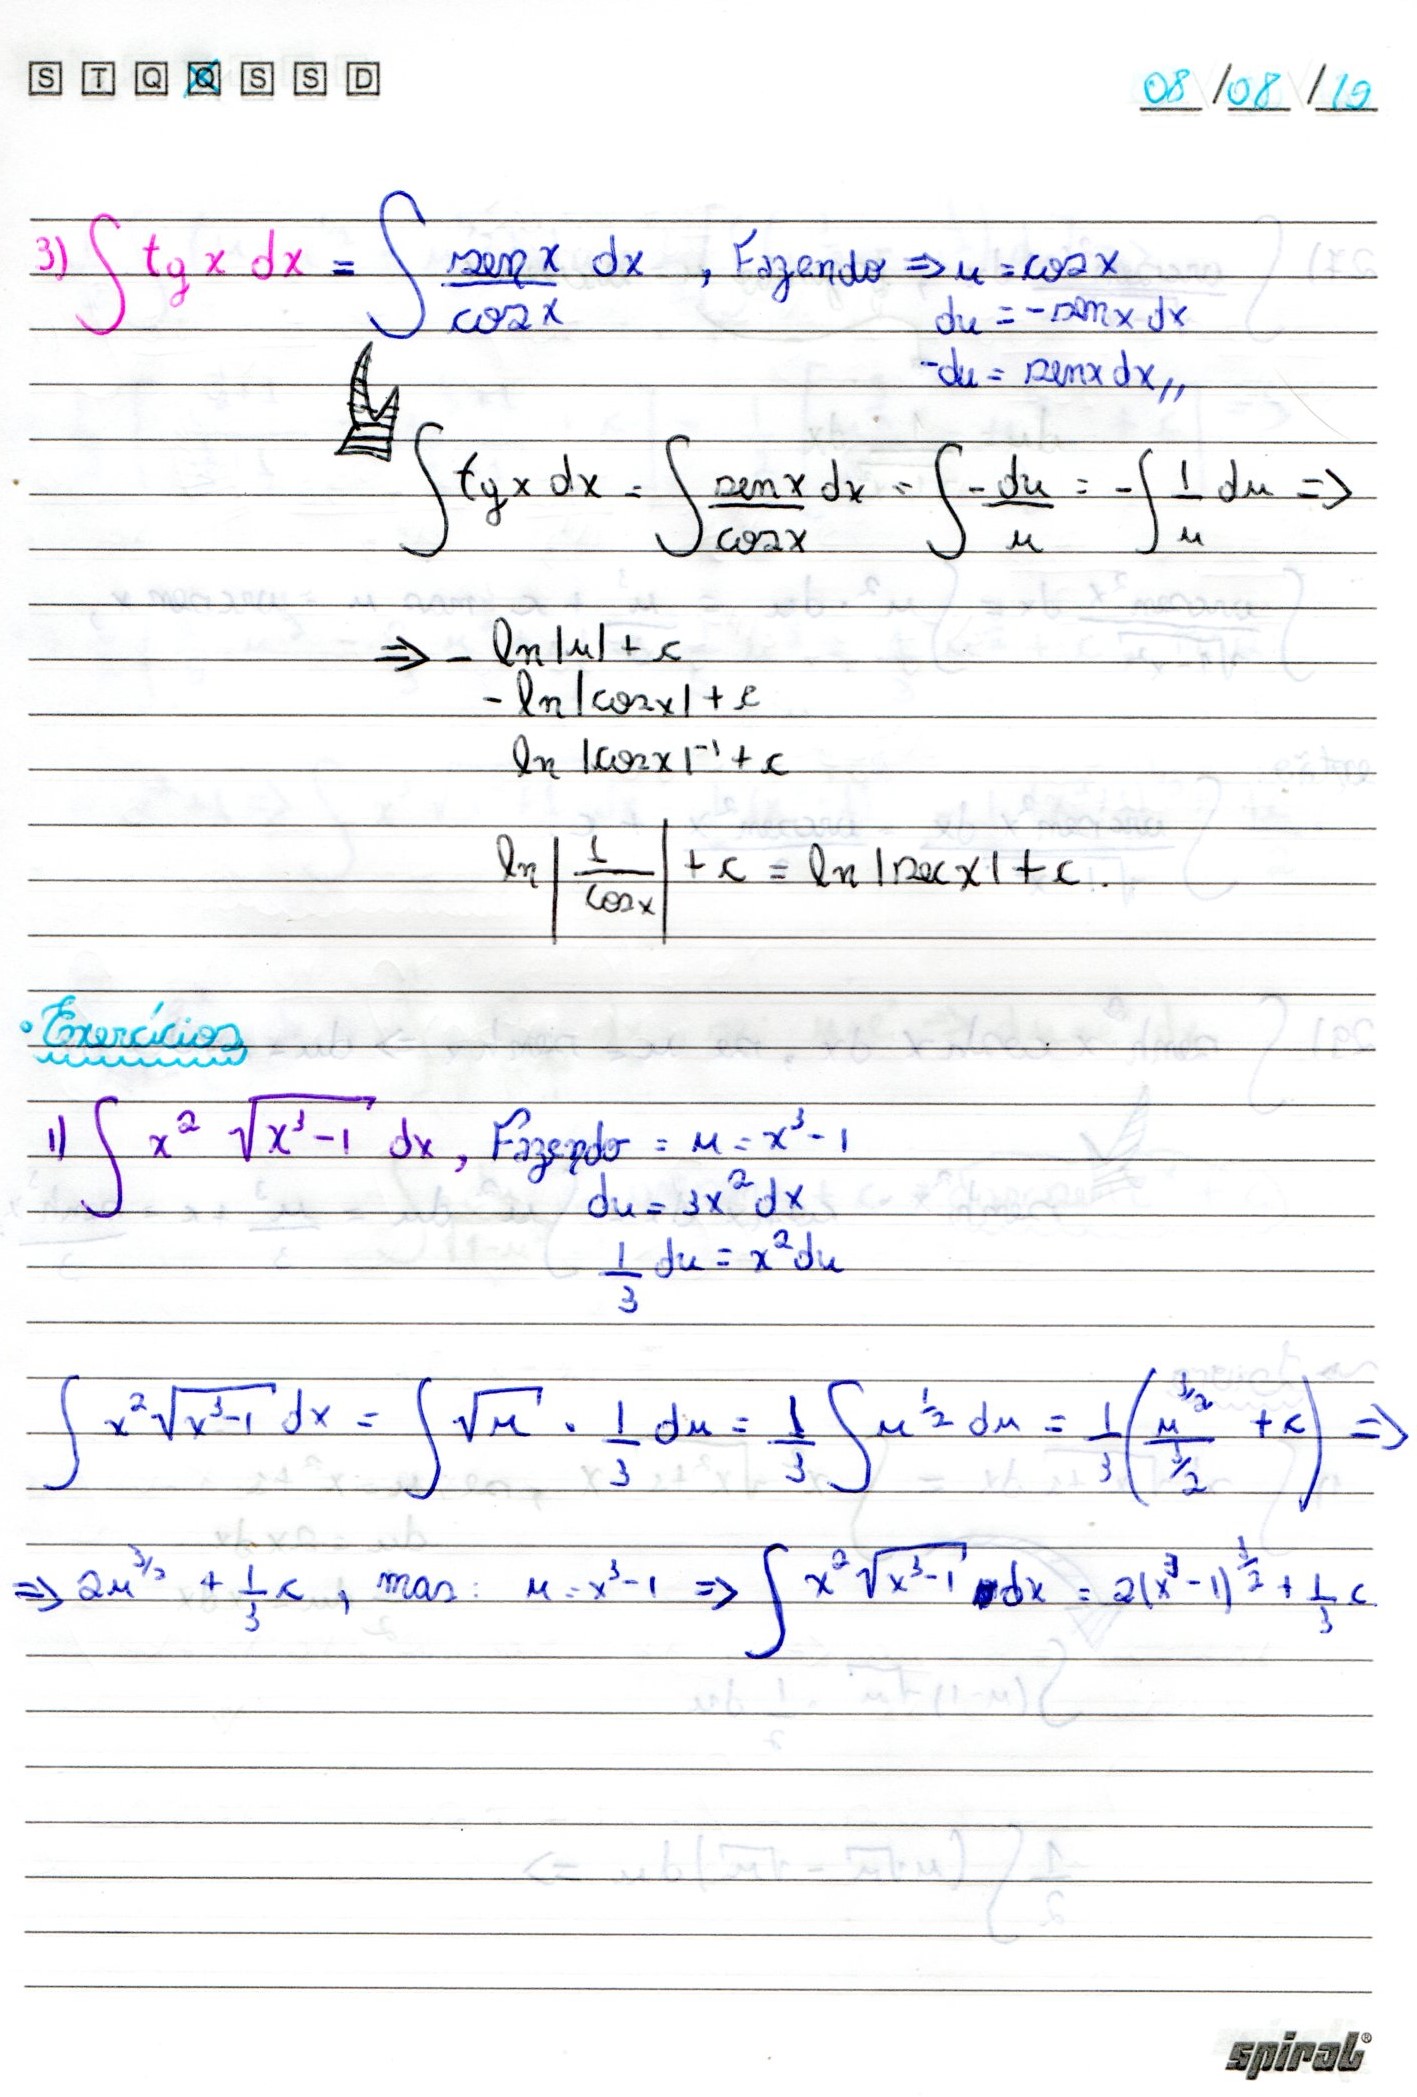 S T Q Q S S D 08/08/19
3) ∫ tg x dx = ∫ sen x / cos x dx , Fazendo ⇒ u = cos x
du = - sen x dx
-du = sen x dx //
∫ tg x dx = ∫ sen x / cos x dx = ∫ - du / u = - ∫ 1/u du ⇒
⇒ - ln |u| + c
- ln |cos x| + c
ln |cos x|⁻¹ + c
ln | 1 / cos x | + c = ln |sec x| + c .
• Exercícios
1) ∫ x² √(x³-1) dx , Fazendo = u = x³-1
du = 3x² dx
1/3 du = x² du
∫ x² √(x³-1) dx = ∫ √u · 1/3 du = 1/3 ∫ u^1/2 du = 1/3 ( u^3/2 / 3/2 + c ) ⇒
⇒ 2u^3/2 + 1/3 c , mas: u = x³-1 ⇒ ∫ x² √(x³-1) dx = 2(x³-1)^3/2 + 1/3 c
spiral®